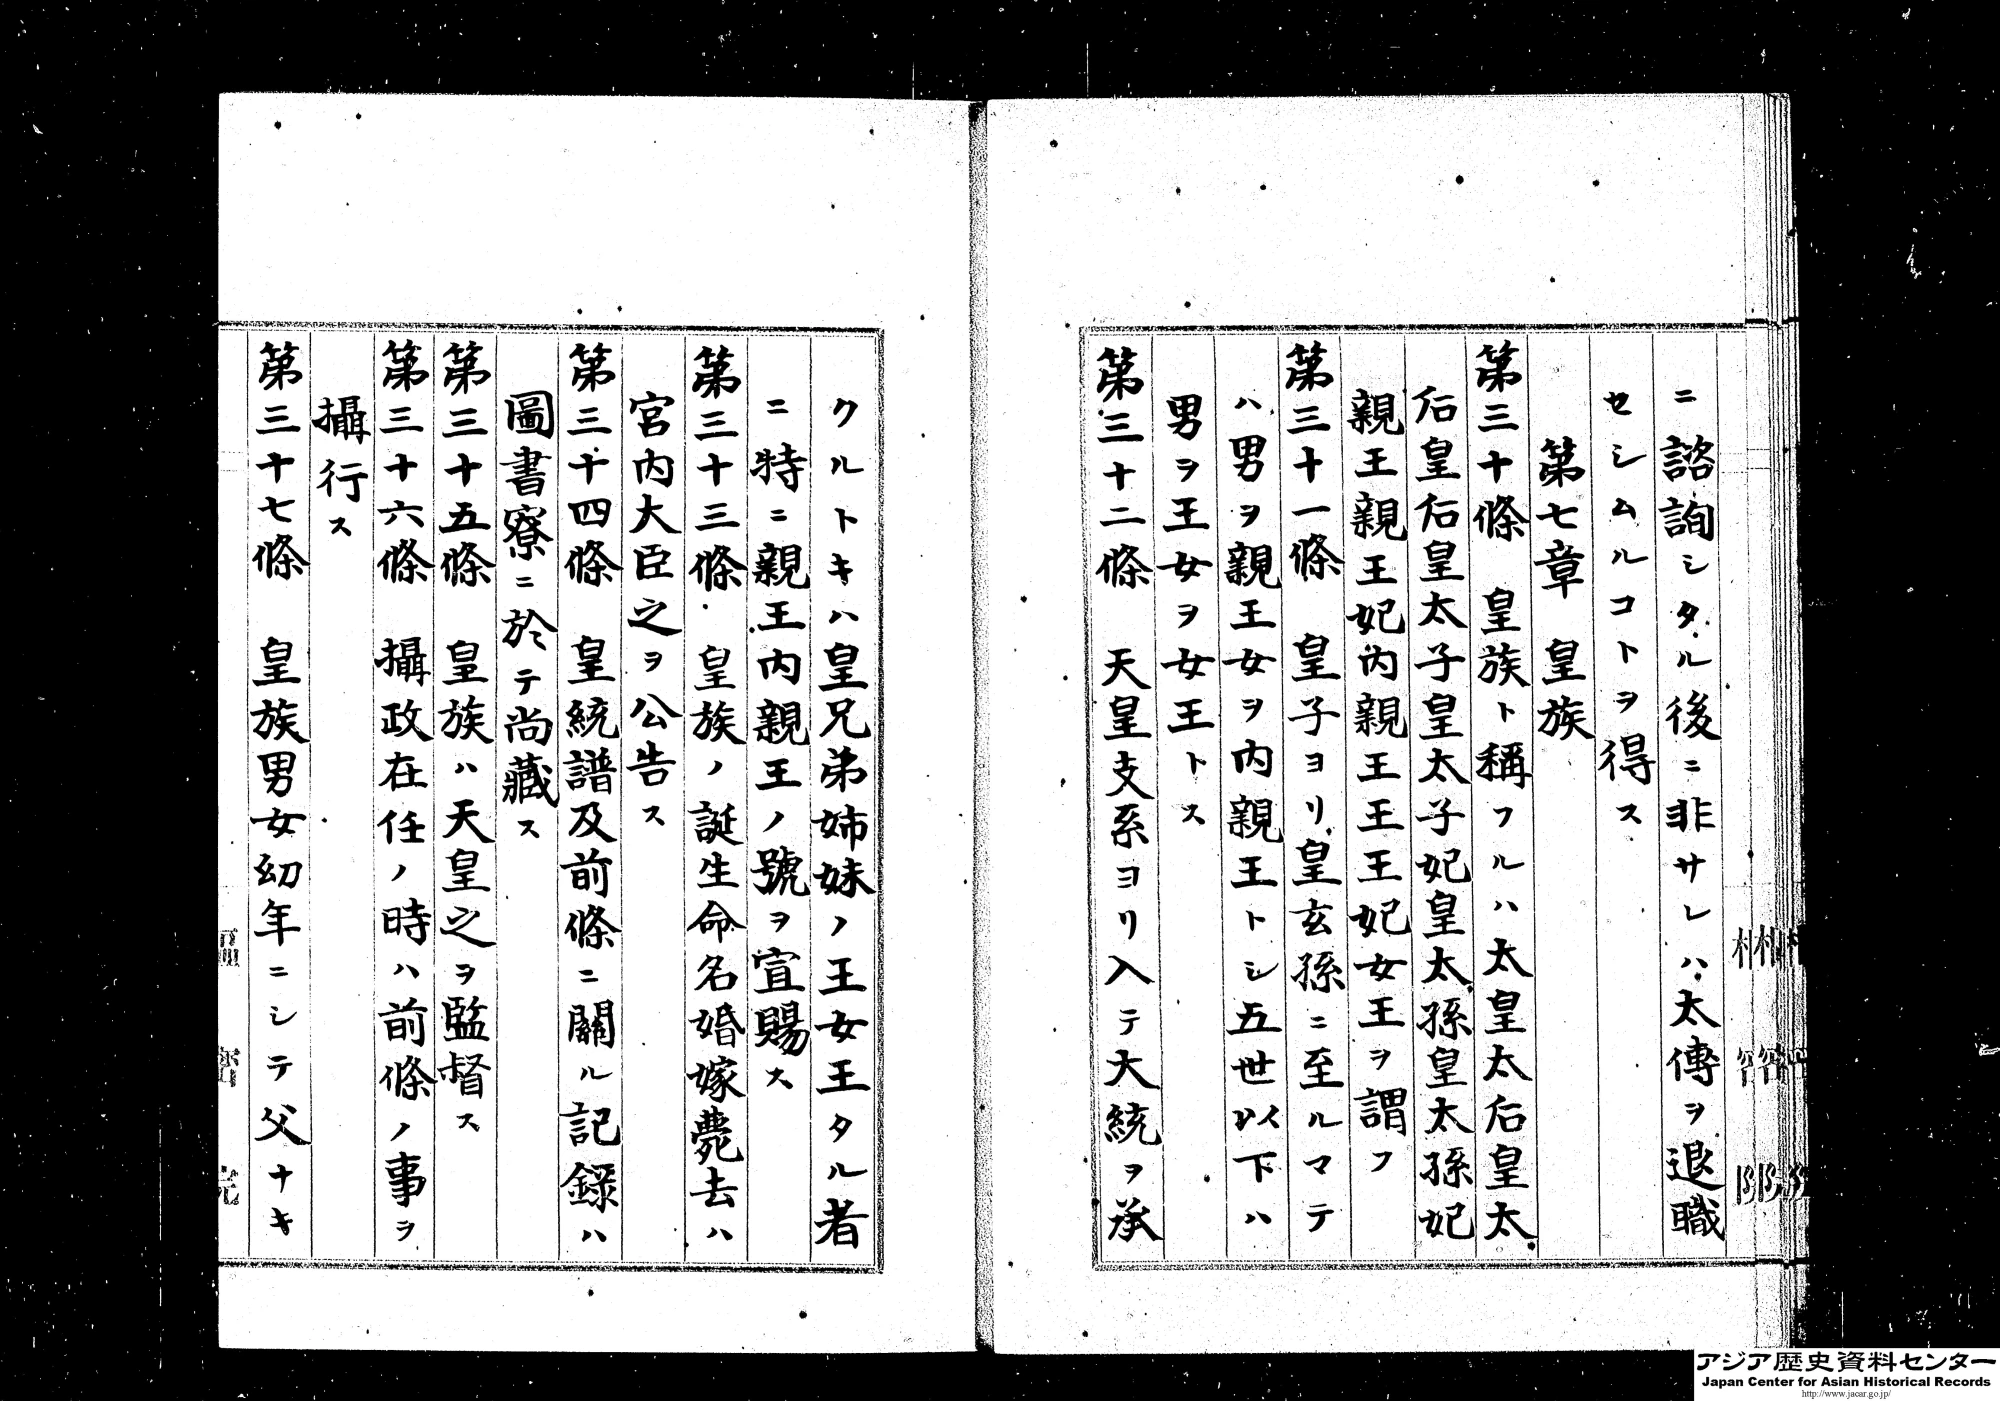 ニ諮詢シタル後ニ非サレハ太傅ヲ退職
セシムルコトヲ得ス
第七章 皇族
第三十條 皇族ト稱フルハ太皇太后皇太
后皇后皇太子皇太子妃皇太孫皇太孫妃
親王親王妃内親王王王妃女王ヲ謂フ
第三十一條 皇子ヨリ皇玄孫ニ至ルマテ
ハ男ヲ親王女ヲ内親王トシ五世以下ハ
男ヲ王女ヲ女王トス
第三十二條 天皇支系ヨリ入テ大統ヲ承
クルトキハ皇兄弟姉妹ノ王女王タル者
ニ特ニ親王内親王ノ號ヲ宣賜ス
第三十三條 皇族ノ誕生命名婚嫁薨去ハ
宮内大臣之ヲ公告ス
第三十四條 皇統譜及前條ニ關ル記錄ハ
圖書寮ニ於テ尚藏ス
第三十五條 皇族ハ天皇之ヲ監督ス
第三十六條 攝政在任ノ時ハ前條ノ事ヲ
攝行ス
第三十七條 皇族男女幼年ニシテ父ナキ
アジア歴史資料センター
Japan Center for Asian Historical Records
http://www.jacar.go.jp/